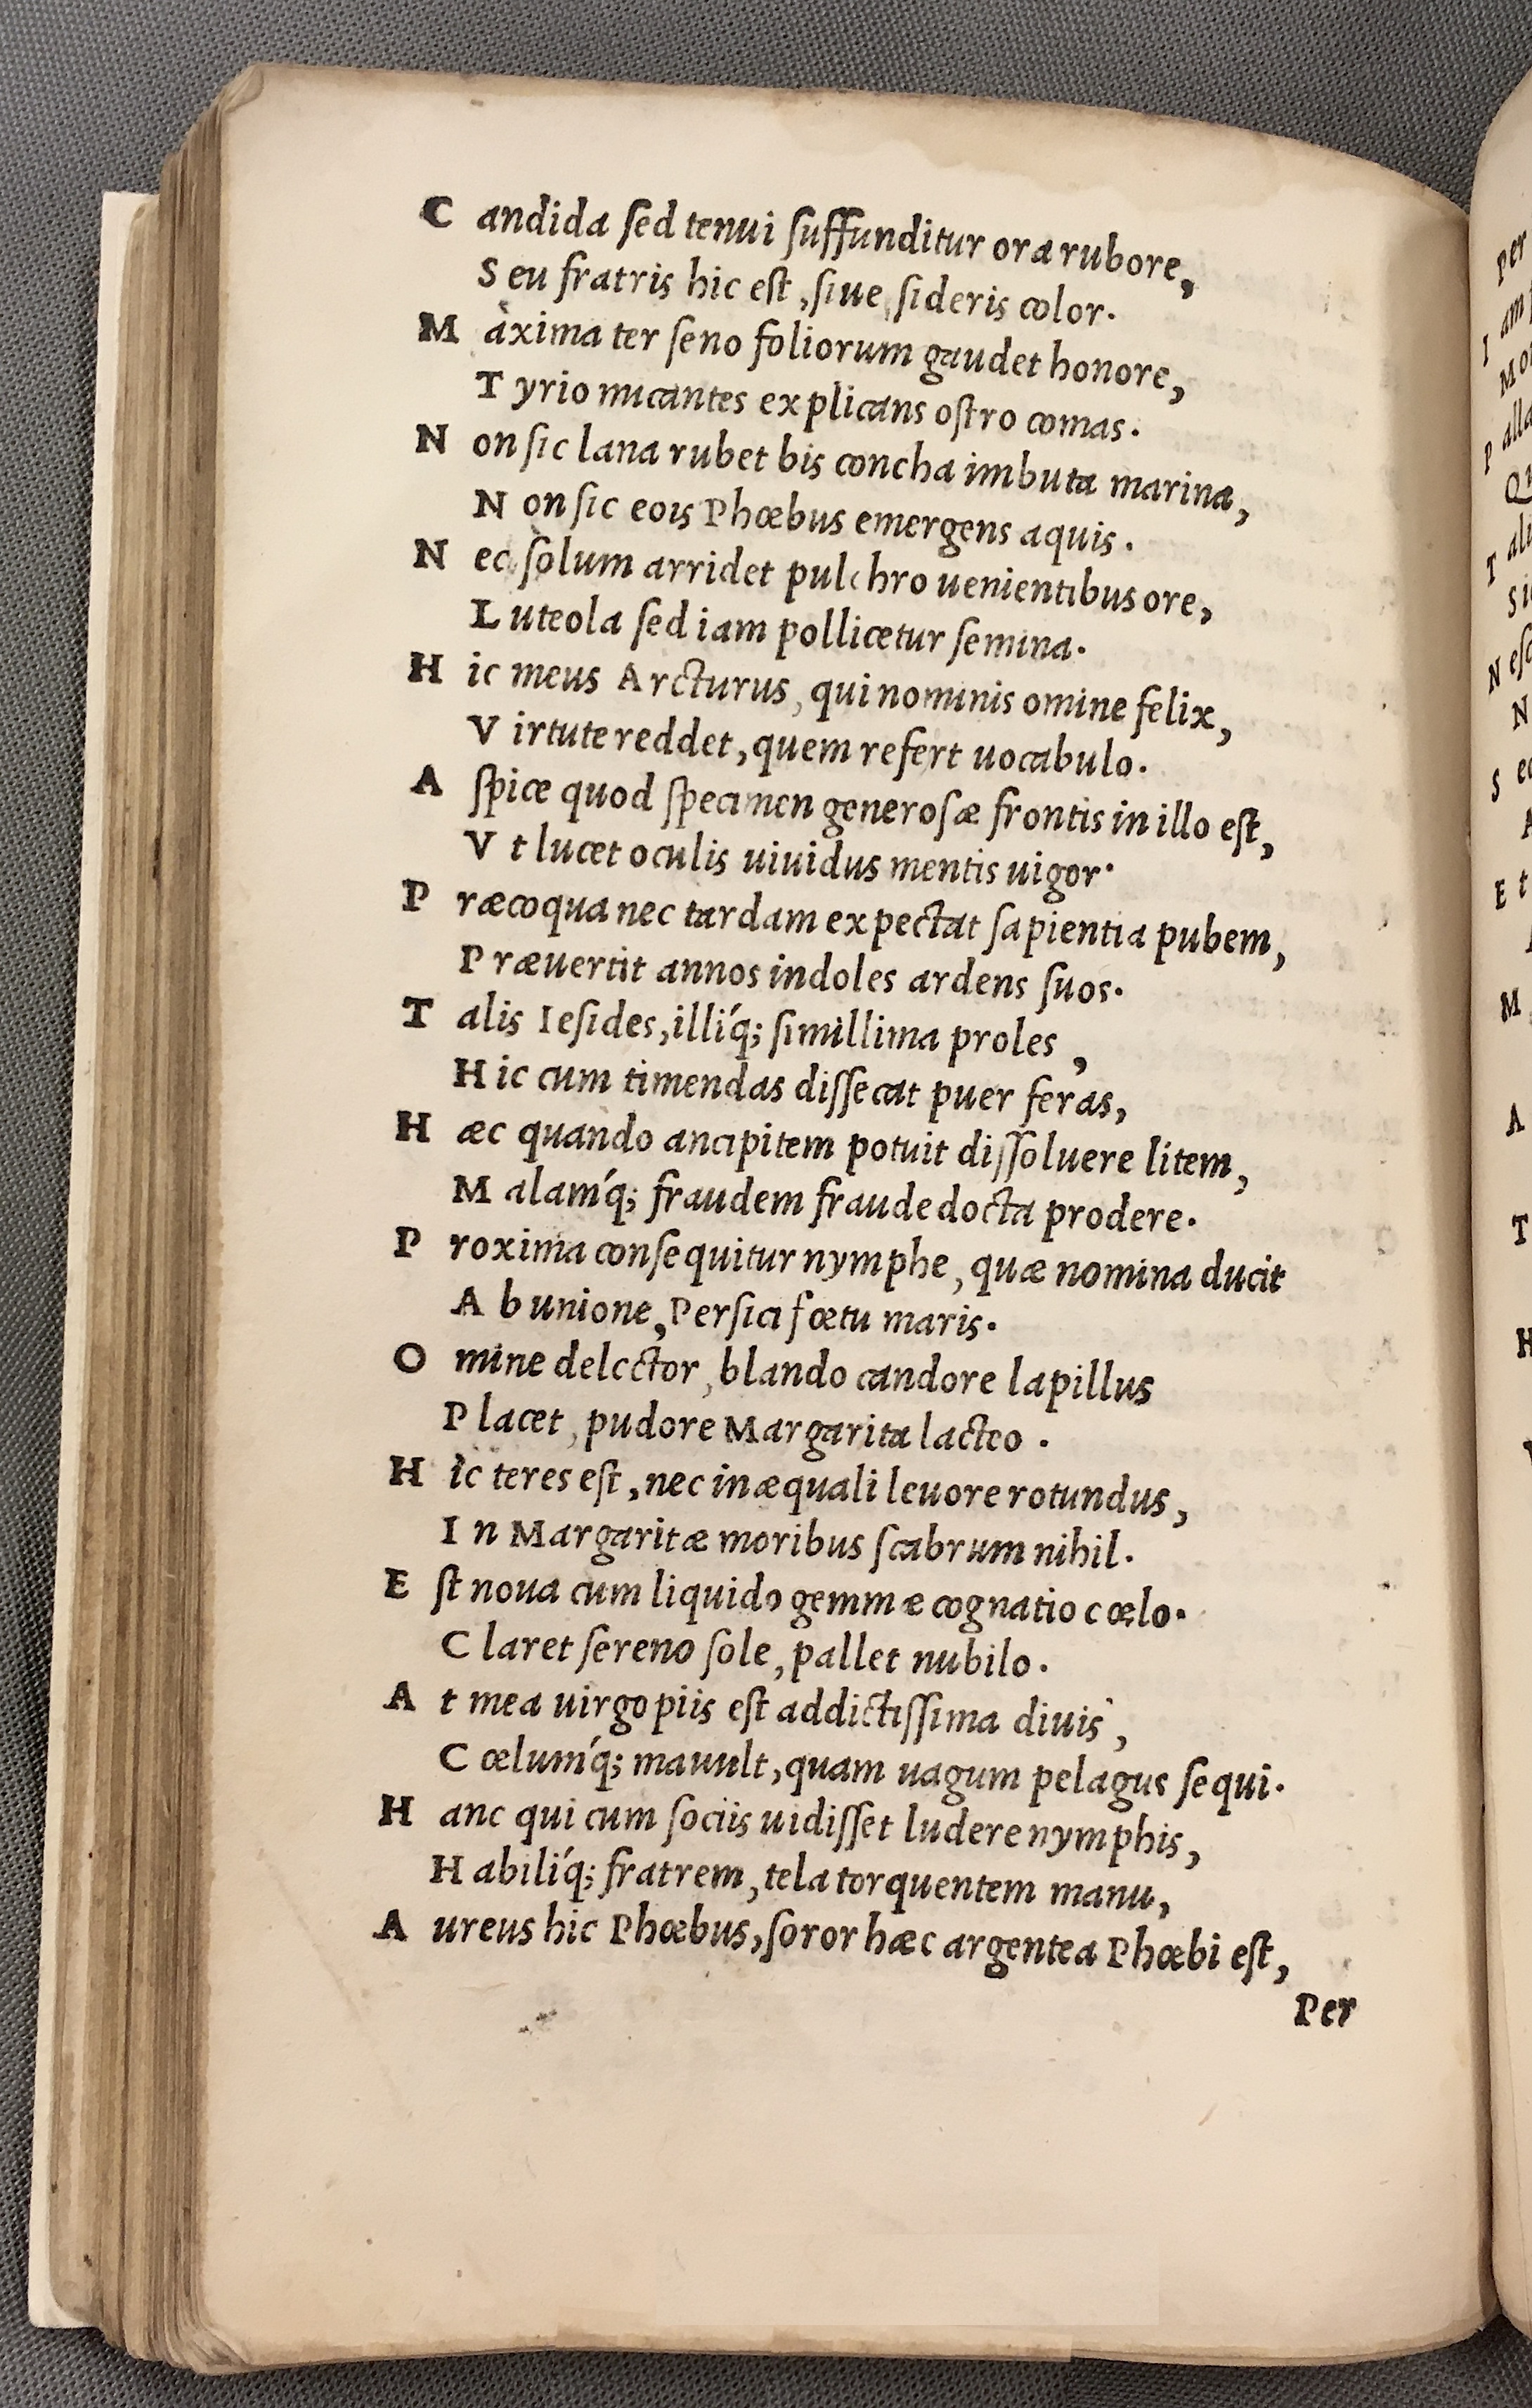 Candida sed tenui suffunditur ora rubore,
Seu fratris hic est, siue sideris color.
Maxima ter seno foliorum gaudet honore,
Tyrio micantes explicans ostro comas.
Non sic lana rubet bis concha imbuta marina,
Non sic eois Phœbus emergens aquis.
Nec solum arridet pulchro uenientibus ore,
Luteola sed iam pollicetur semina.
Hic meus Arcturus, qui nominis omine felix,
Virtute reddet, quem refert uocabulo.
Aspice quod specimen generosæ frontis in illo est,
Vt lucet oculis uiuidus mentis uigor.
Præcoqua nec tardam expectat sapientia pubem,
Præuertit annos indoles ardens suos.
Talis Iesides, illíq; simillima proles,
Hic cum timendas dissecat puer feras,
Hæc quando ancipitem potuit dissoluere litem,
Malamq́; fraudem fraude docta prodere.
Proxima consequitur nymphe, quæ nomina ducit
Ab unione, Persici fœtu maris.
Omine delector, blando candore lapillus
Placet, pudore Margarita lacteo.
Hic teres est, nec inæquali leuore rotundus,
In Margaritæ moribus scabrum nihil.
Est noua cum liquido gemmæ cognatio cœlo.
Claret sereno sole, pallet nubilo.
At mea uirgo piis est addictissima diuis,
Cœlumq́; mauult, quam uagum pelagus sequi.
Hanc qui cum sociis uidisset ludere nymphis,
Habilíq; fratrem, tela torquentem manu,
Aureus hic Phœbus, soror hæc argentea Phœbi est,
Per